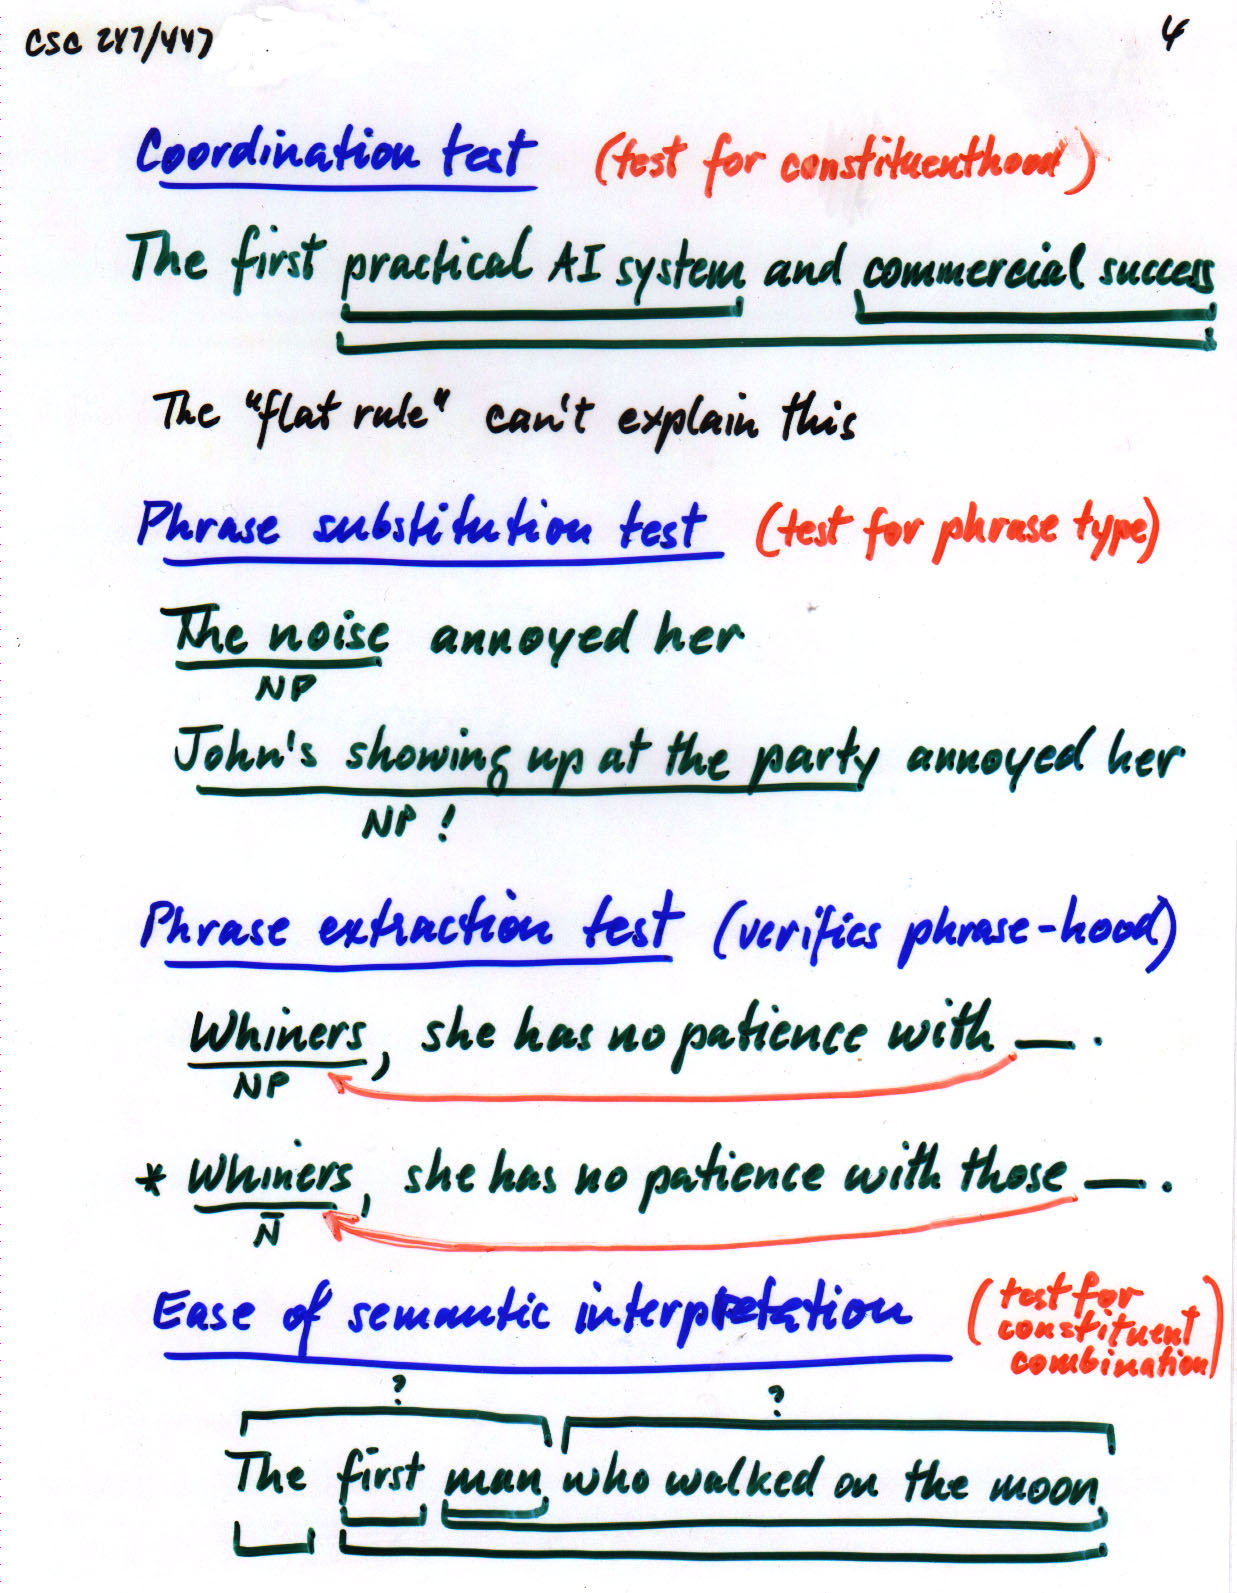 CSC 247/447
4
Coordination test (test for constituenthood)
The first practical AI system and commercial success
The "flat rule" can't explain this
Phrase substitution test (test for phrase type)
The noise annoyed her
NP
John's showing up at the party annoyed her
NP!
Phrase extraction test (verifies phrase-hood)
Whiners, she has no patience with __.
NP
* Whiners, she has no patience with those __.
N̄
Ease of semantic interpretation (test for
constituent
combination)
? ?
The first man who walked on the moon